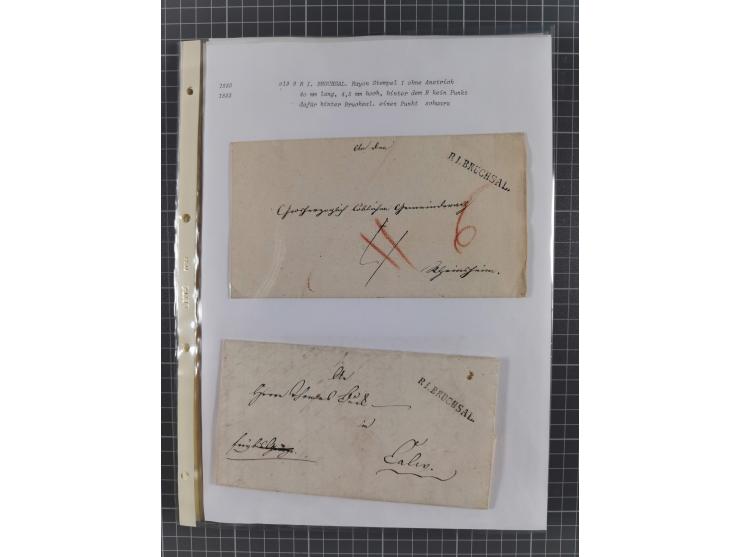 1820 a18 9 R 1. BRUCHSAL. Rayon Stempel 1 ohne Anstrich
1822 40 mm lang, 4,5 mm hoch, hinter dem R kein Punkt
dafür hinter Bruchsal. einen Punkt schwarz
An den
R 1. BRUCHSAL.
Großherzoglich Löblichen Gemeinderath
6
Rheinsheim.
An
R 1. BRUCHSAL.
Herrn
in
Calw.